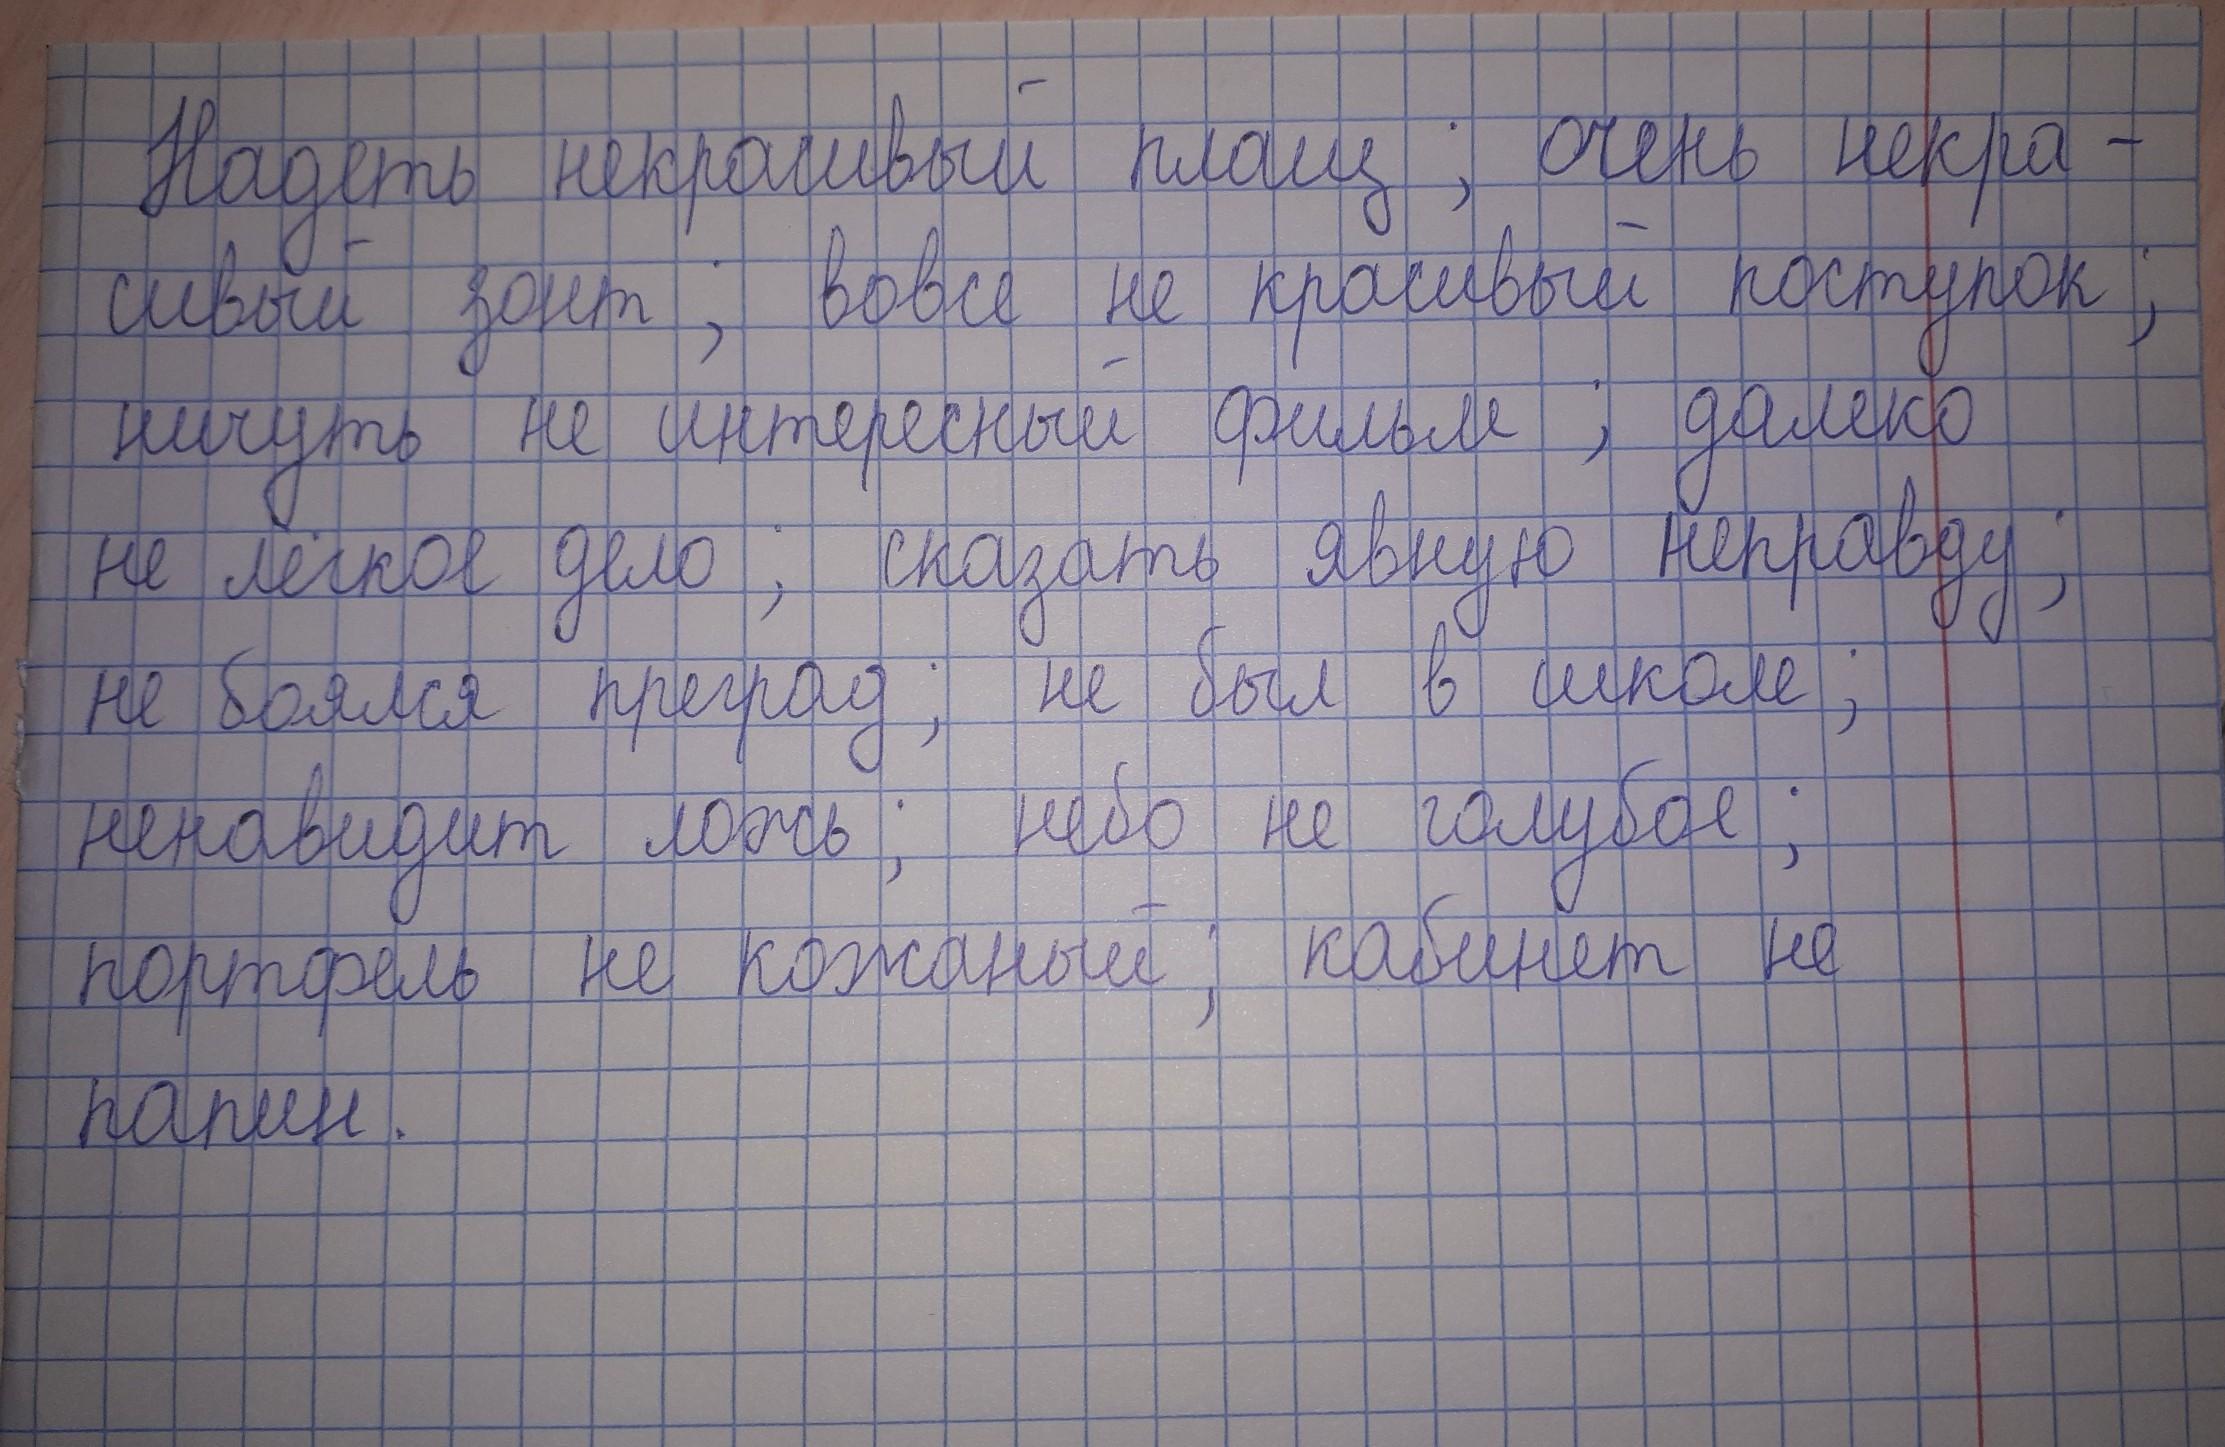 Надеть некрасивый плащ; очень некра-
сивый зонт; вовсе не красивый поступок;
ничуть не интересный фильм; далеко
не лёгкое дело; сказать явную неправду;
не боялся преград; не был в школе;
ненавидит ложь; небо не голубое;
портфель не кожаный; кабинет не
папин.